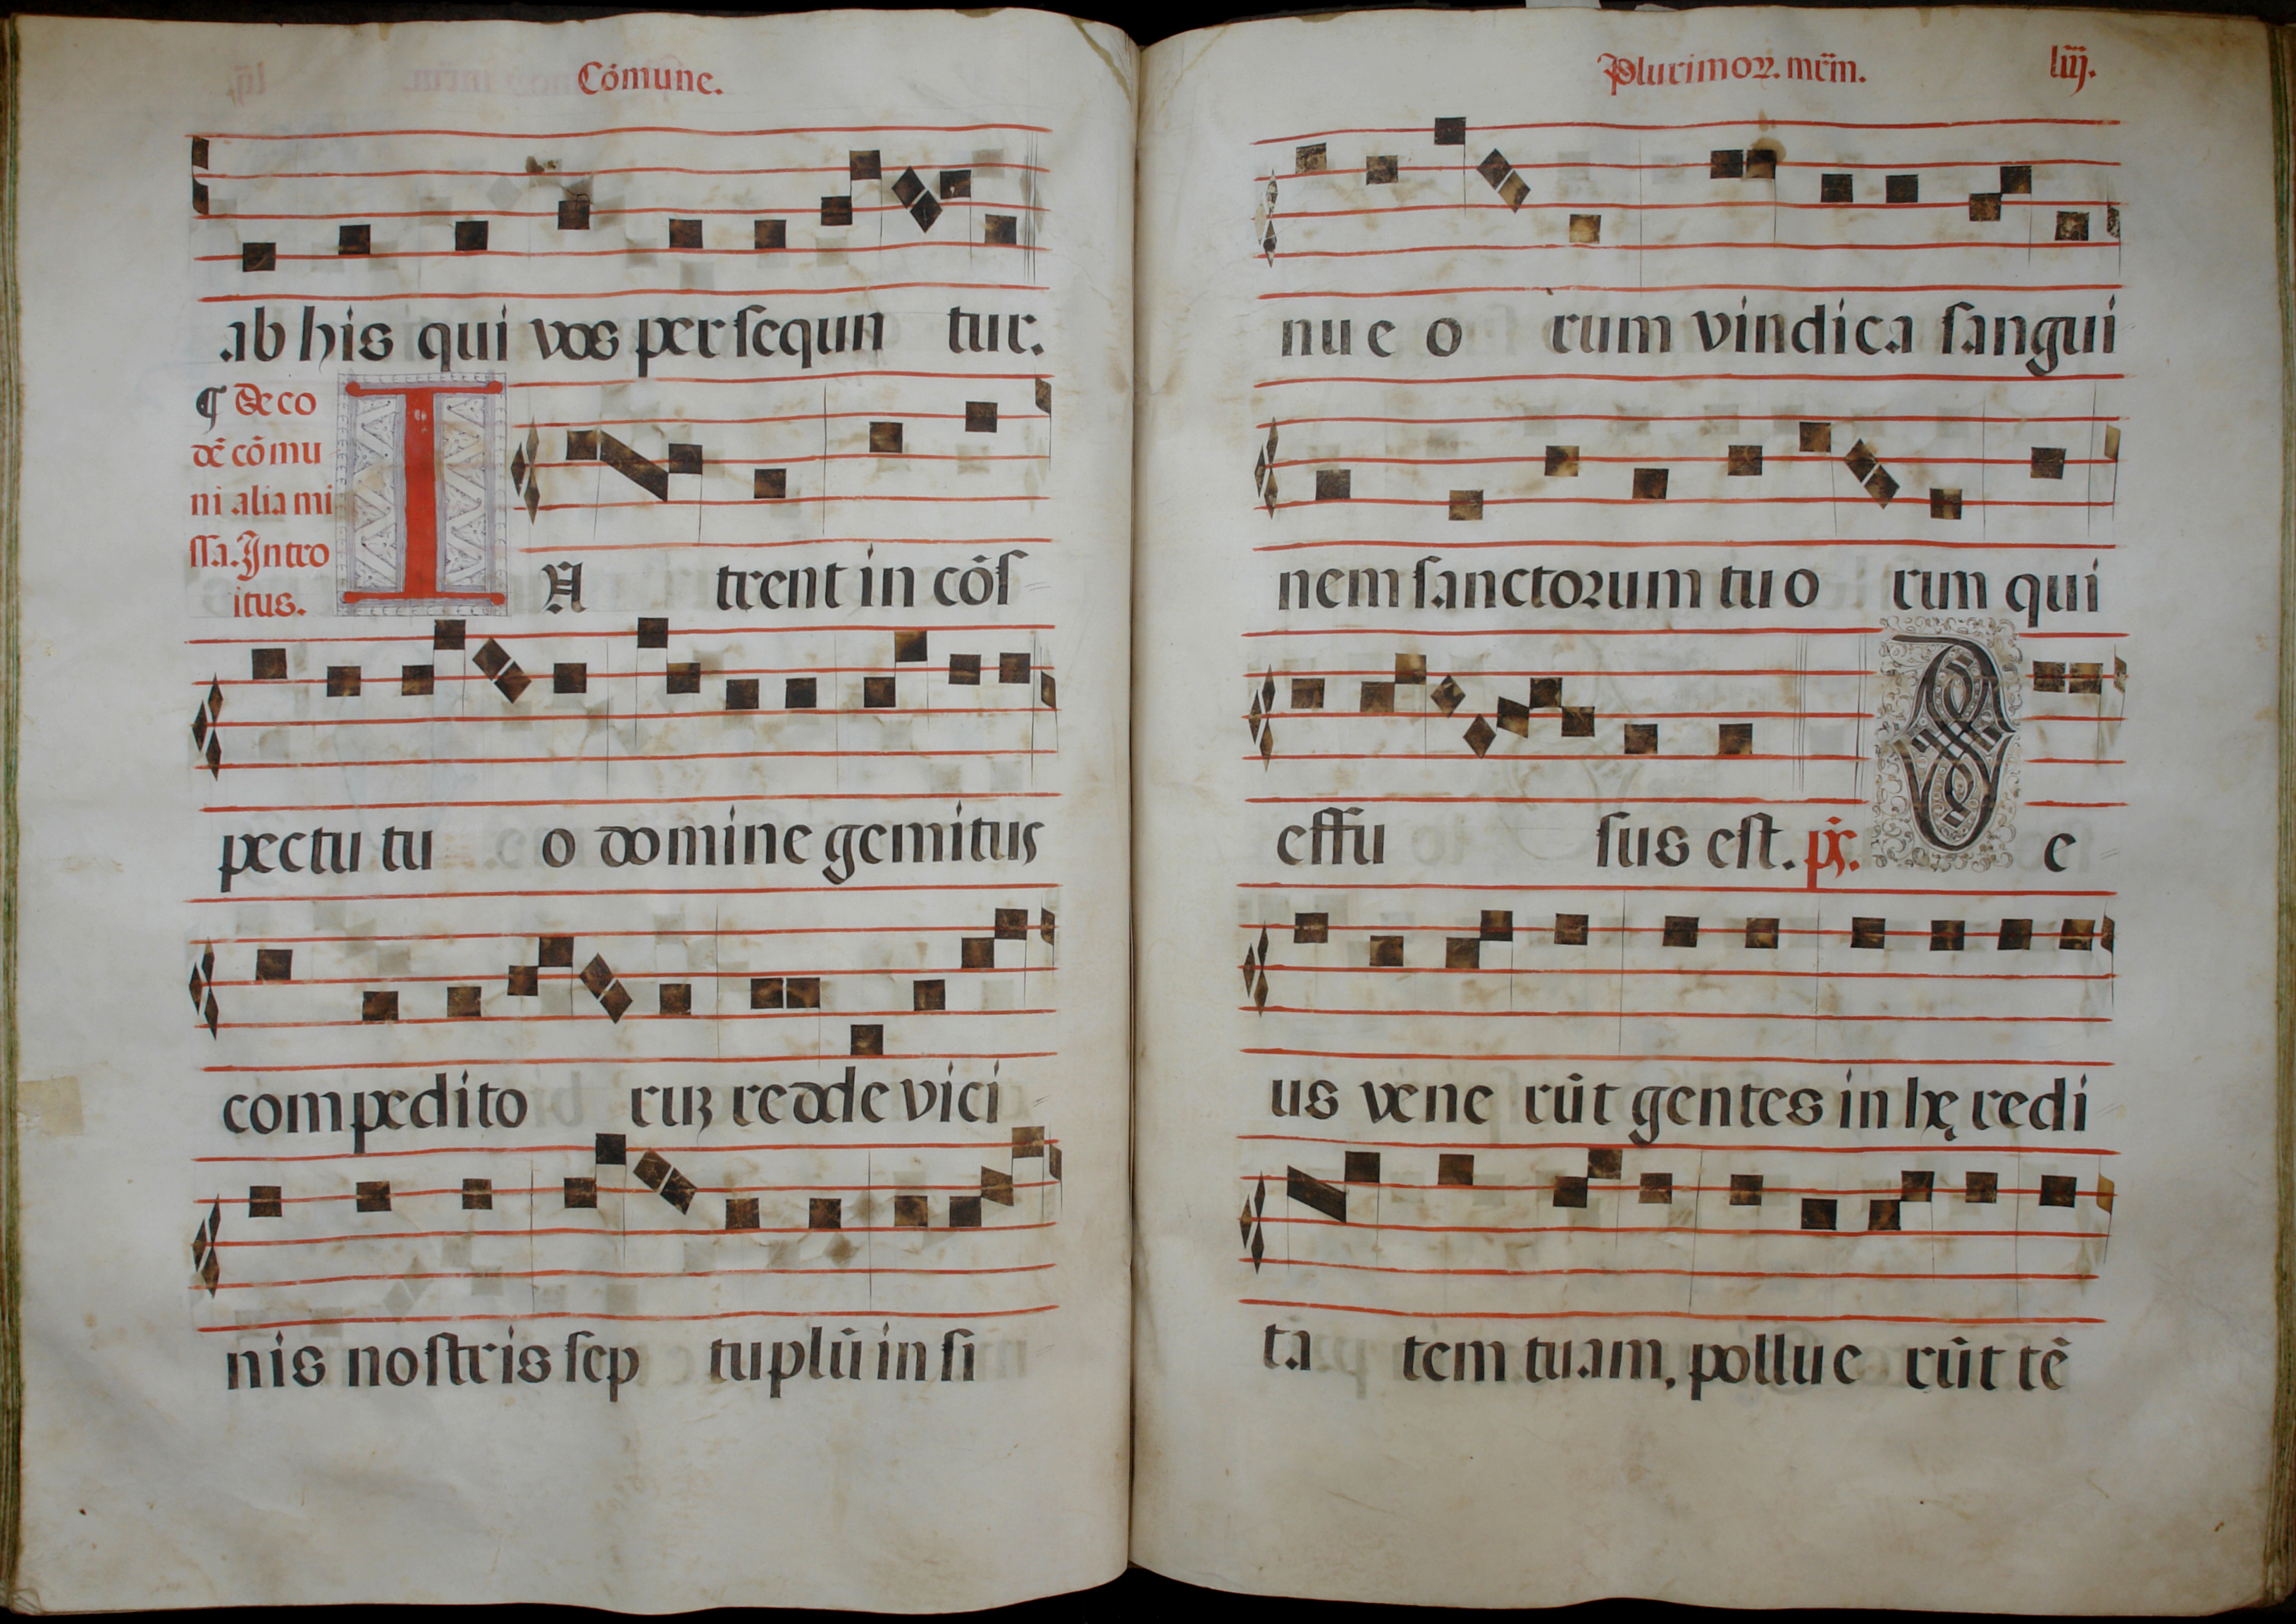 Cōmune.
ab his qui vos persequn tur.
¶ De eo
dē cōmu
ni alia mi
ssa. Intro
itus.
I N trent in cōs
pectu tu o domine gemitus
compedito ruꝫ redde vici
nis nostris sep tuplū in si
Plurimoꝝ. mr̄m. liij.
nu e o rum vindica sangui
nem sanctorum tuo rum qui
effu sus est. ps. D e
us vene rūt gentes in hę redi
ta tem tuam, pollue rūt tē